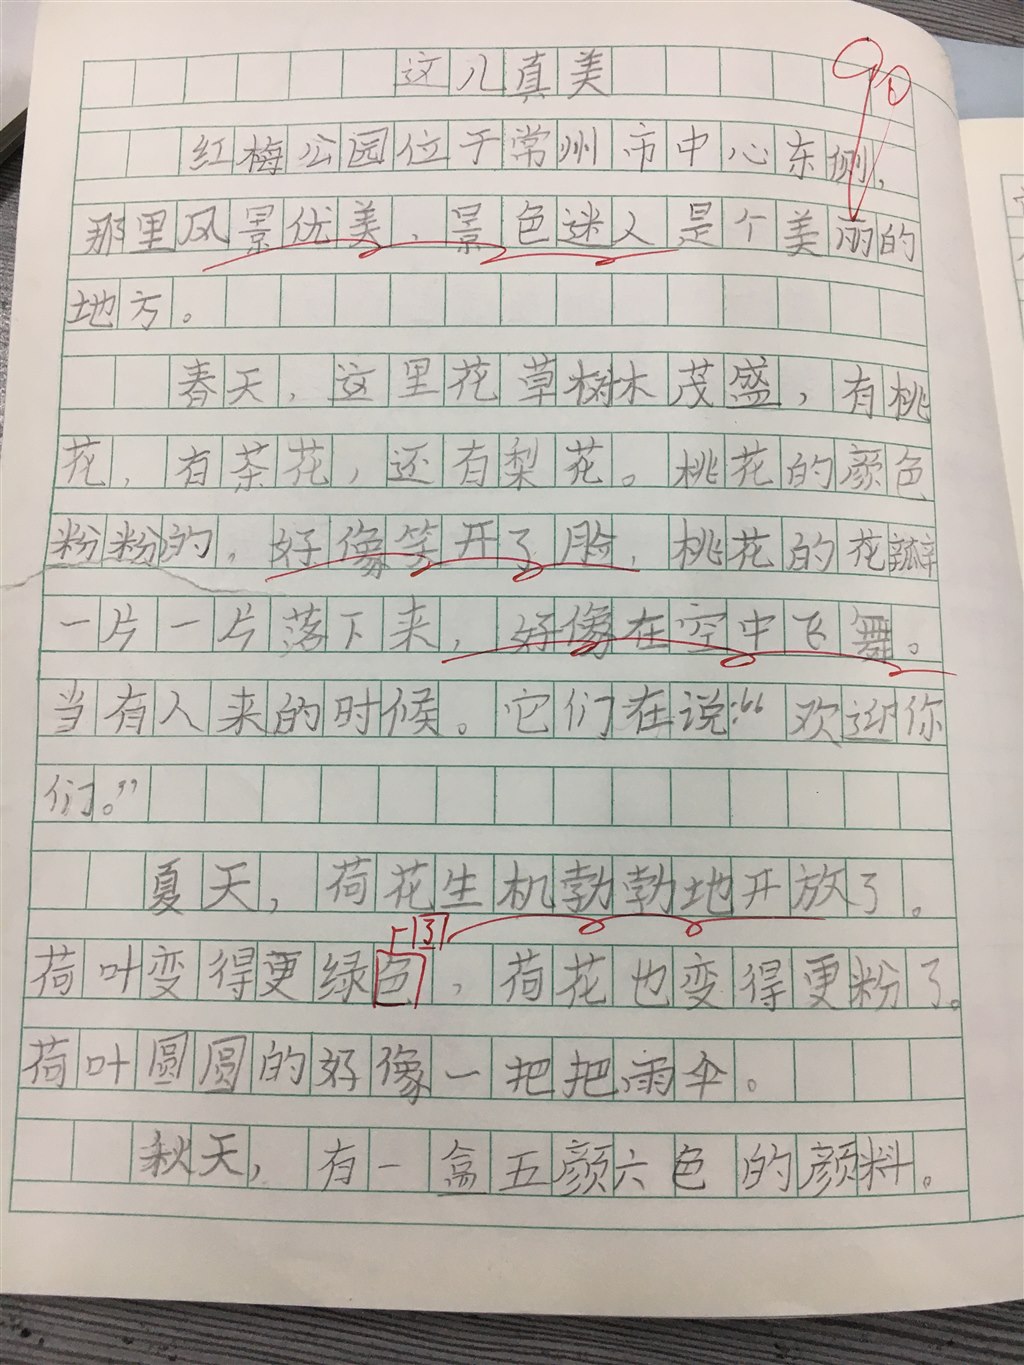 这儿真美
90
红梅公园位于常州市中心东侧，
那里风景优美，景色迷人是个美丽的
地方。
春天，这里花草树木茂盛，有桃
花，有茶花，还有梨花。桃花的颜色
粉粉的，好像笑开了脸，桃花的花瓣
一片一片落下来，好像在空中飞舞。
当有人来的时候。它们在说：“欢迎你
们。”
夏天，荷花生机勃勃地开放了。
了
荷叶变得更绿色，荷花也变得更粉了。
荷叶圆圆的好像一把把雨伞。
秋天，有一盒五颜六色的颜料。